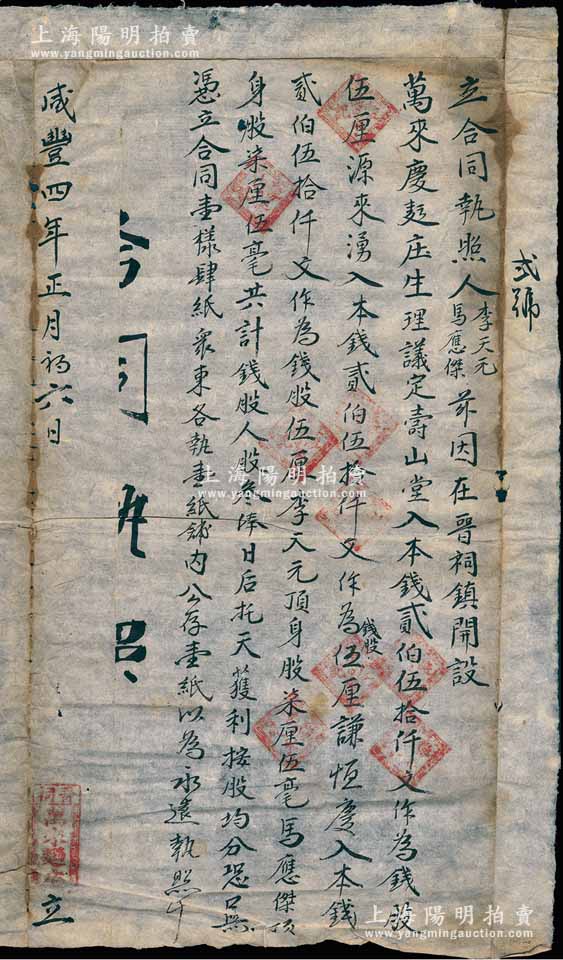 上海陽明拍賣
www.yangmingauction.com
上海陽明拍賣
www.yangmingauction.com
弍號
立合同執照人李天元馬應傑茲因在晉祠鎮開設
萬來慶麪庄生理議定壽山堂入本錢貳伯伍拾仟文作為錢股
伍厘源來湧入本錢貳伯伍拾仟文作為錢股伍厘謙恒慶入本錢
貳伯伍拾仟文作為錢股伍厘李天元頂身股柒厘伍毫馬應傑頂
身股柒厘伍毫共計錢股人股叁俸日后托天獲利按股均分恐口無
憑立合同壹樣肆紙衆東各執壹紙舖内公存壹紙以為永遠執照
咸豐四年正月初六日
立
上海陽明拍賣
www.yangmingauction.com
上海陽明拍賣
www.yangmingauction.com
上海陽明拍賣
www.yangmingauction.com